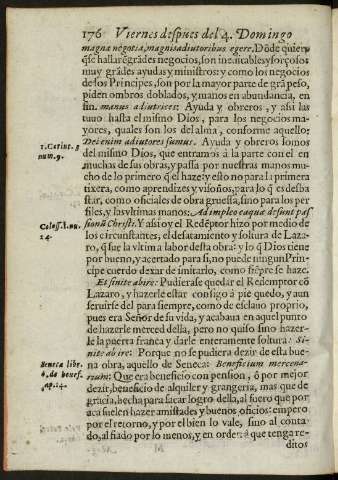 176 Viernes despues del 4. Domingo
magna negotia, magnis adiutoribus egere. Dõde quiera
q̃ se hallarẽ grãdes negocios, son ineuitables y forçosos
muy grãdes ayudas y ministros: y como los negocios
de los Principes, son por la mayor parte de grã peso,
piden ombros doblados, y manos en abundancia, en
fin. manus adiutrices: Ayuda y obreros, y assi las
tuuo hasta el mismo Dios, para los negocios ma-
yores, quales son los del alma, conforme aquello:
1. Corint. 3
Dei enim adiutores sumus. Ayuda y obreros somos
num. 9.
del mismo Dios, que entramos à la parte con el en
muchas de sus obras, y passa por nuestras manos mu-
cho de lo primero q̃ el haze: y esto no para la primera
tixera, como aprendizes y visoños, para lo q̃ es desba
star, como oficiales de obra gruessa, sino para los per
files, y las vltimas manos: Adimpleo ea quæ desunt pas
Coloss. 1. nu.
sionũ Christi. Y assi oy el Redẽptor hizo por medio de
24.
los circunstantes, el desatamiento y soltura de Laza-
ro, q̃ fue la vltima labor desta obra: y lo q̃ Dios tiene
por bueno, y acertado para si, no puede ningun Prin-
cipe cuerdo dexar de imitarlo, como siẽpre se haze.
Et sinite abire: Pudierase quedar el Redemptor cõ
Lazaro, y hazerle estar consigo à pie quedo, y aun
seruirse del para siempre, como de esclauo proprio,
pues era Señor de su vida, y acabaua en aquel punto
de hazerle merced della, pero no quiso sino hazer-
le la puerta franca y darle enteramente soltura: Si-
nite abire: Porque no se pudiera dezir de esta bue-
Seneca libr.
na obra, aquello de Seneca: Beneficium mercena-
6. de benef.
rium: Que era beneficio con pension, ò por mejor
ap. 14.
dezir, beneficio de alquiler y grangeria, mas que de
gracia, hecha para sacar logro della, al fuero que por
aca suelen hazer amistades y buenos oficios: empero
por el retorno, y por el bien lo vale, sino al conta-
do, al fiado por lo menos, y en orden à que tenga re-
ditos